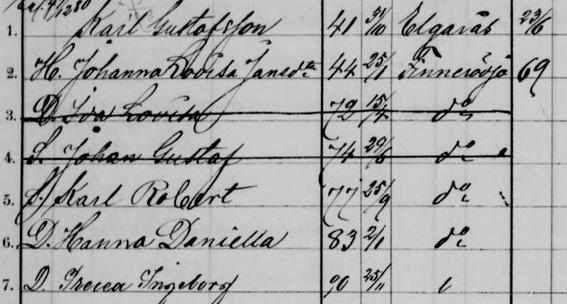 1. Karl Gustafsson 41 31/10 Elgarås 23/6
2. H. Johanna Lovisa Jansdtr 44 25/1 Finnerödja 69
3. D. Ida Lovisa 72 15/4 do
4. S. Johan Gustaf 74 29/6 do
5. S. Karl Robert 77 25/9 do
6. D. Hanna Daniella 83 2/1 do
7. D. Ingeborg 90 25/11